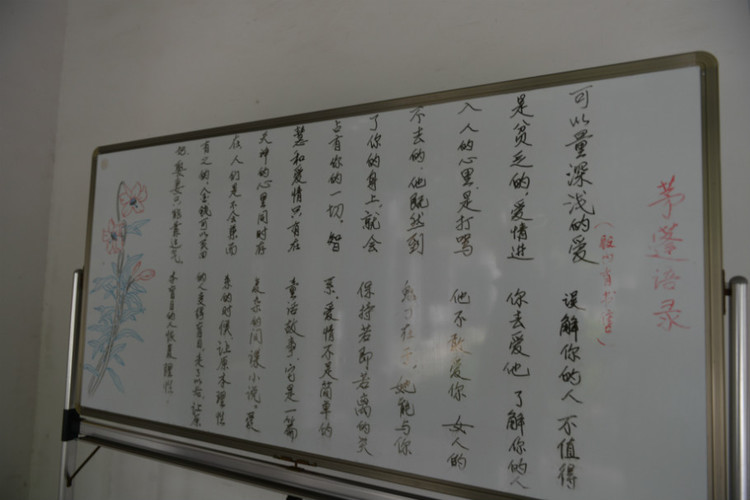 茅蓬语录
可以量深浅的爱
是贫乏的,爱情进
入人的心里,是打骂
不去的,他既然到
了你的身上,就会
占有你的一切。智
慧和爱情只有在
天神的心里同时存
在人们是不会兼而
有之的,金钱可以买田
地,娶妻只能靠运气。
误解你的人不值得
你去爱他 了解你的人
他不敢爱你 女人的
魅力在于,她能与你
保持若即若离的关
系,爱情不是简单的
童话故事,它是一篇
复杂的间谍小说。爱
来的时候让原本理性
的人变得盲目,走了以后,让原
本盲目的人恢复理性。